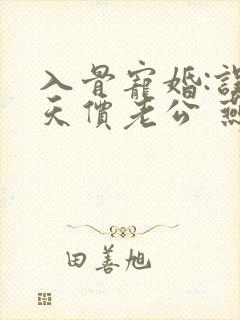 入骨寵婚:
天價老公
田善旭